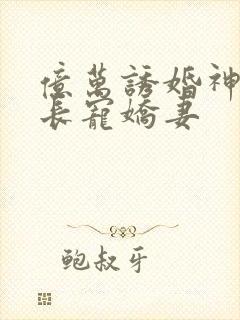 億萬誘婚神
長寵嬌妻
鮑叔牙